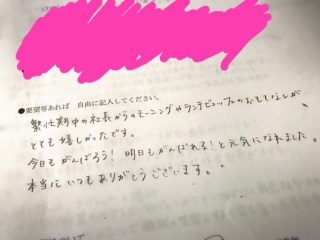 ●要望等あれば 自由に記入してください。
繁忙期中の社長からのモーニングやランチビュッフェのおもてなしが
とても嬉しかったです。
今日もがんばろう！明日もがんばれる！と元気になれました。
本当にいつもありがとうございます。